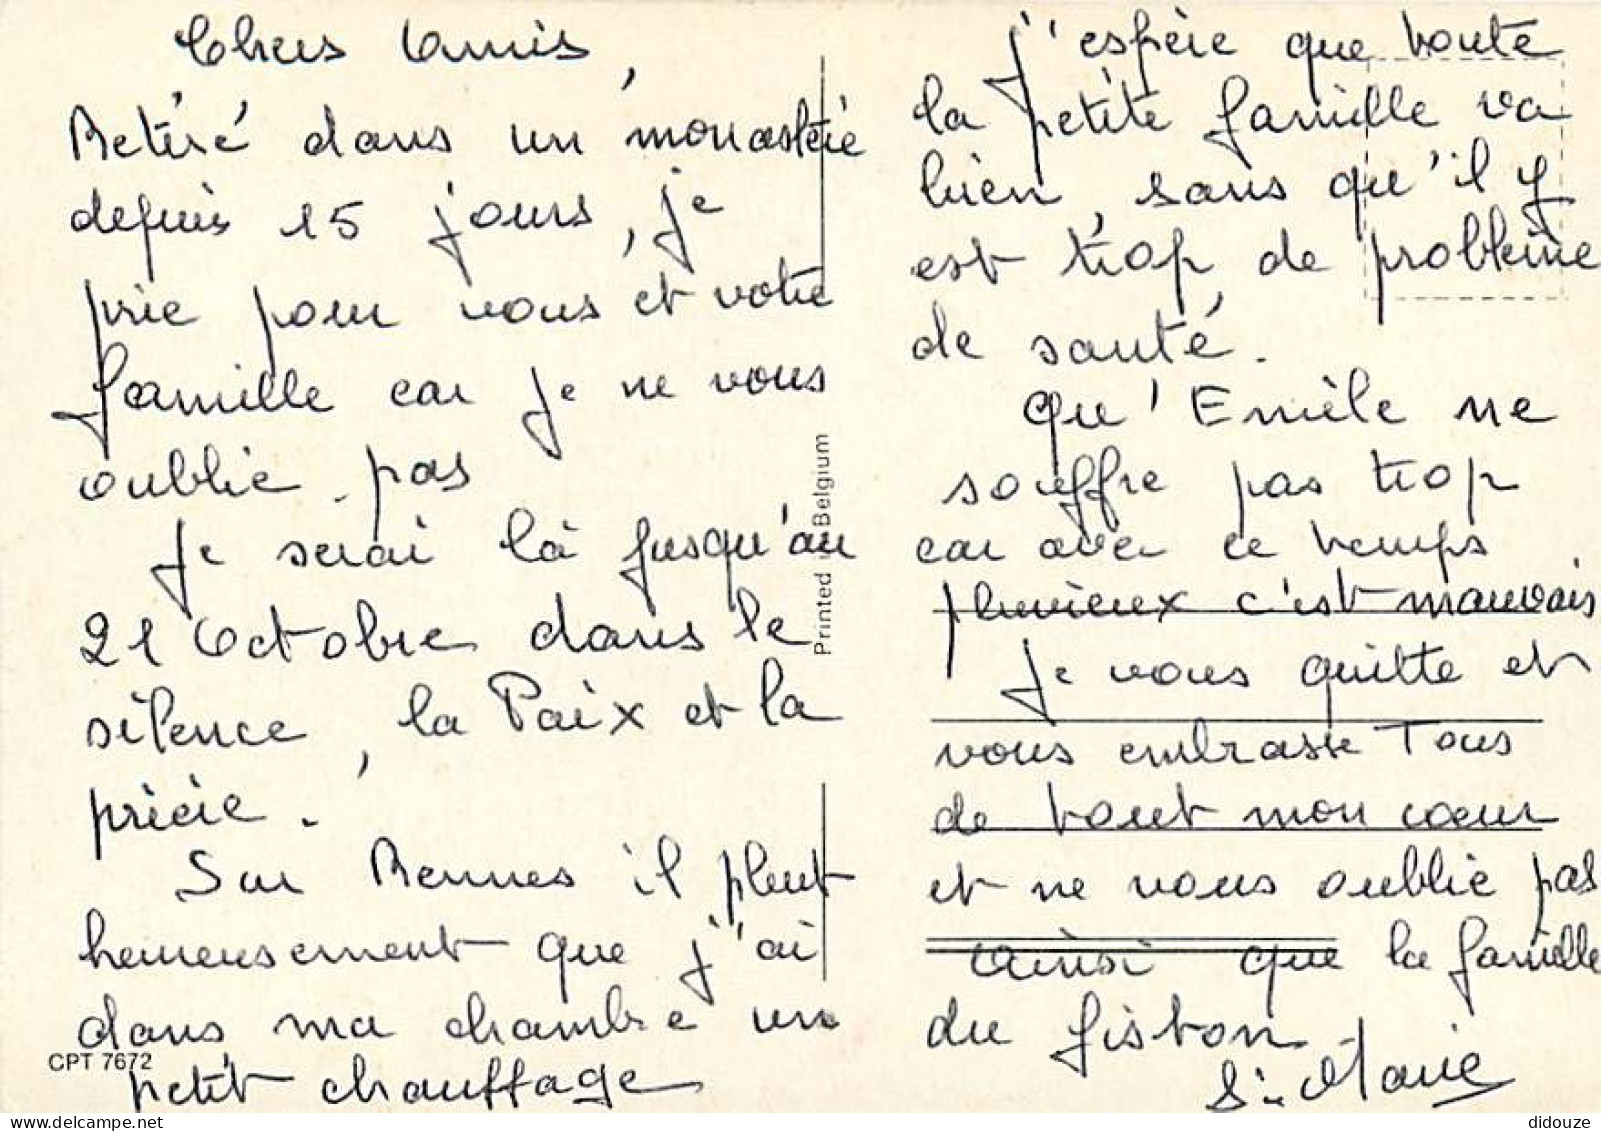 Chers Amis,
Retiré dans un monastère
depuis 15 jours, je
prie pour vous et votre
famille car je ne vous
oublie pas
Je serai là jusqu'au
21 Octobre dans le
silence, la Paix et la
prière.
Sur Rennes il pleut
heureusement que j'ai
dans ma chambre un
petit chauffage
CPT 7672
Printed in Belgium
J'espère que toute
la petite famille va
bien, sans qu'il y
est trop de problème
de santé.
Qu'Emile ne
souffre pas trop
car avec ce temps
pluvieux c'est mauvais
Je vous quitte et
vous embrasse Tous
de tout mon cœur
et ne vous oublie pas
Ainsi que la famille
du fiston
Marie
didouze / delcampe.net